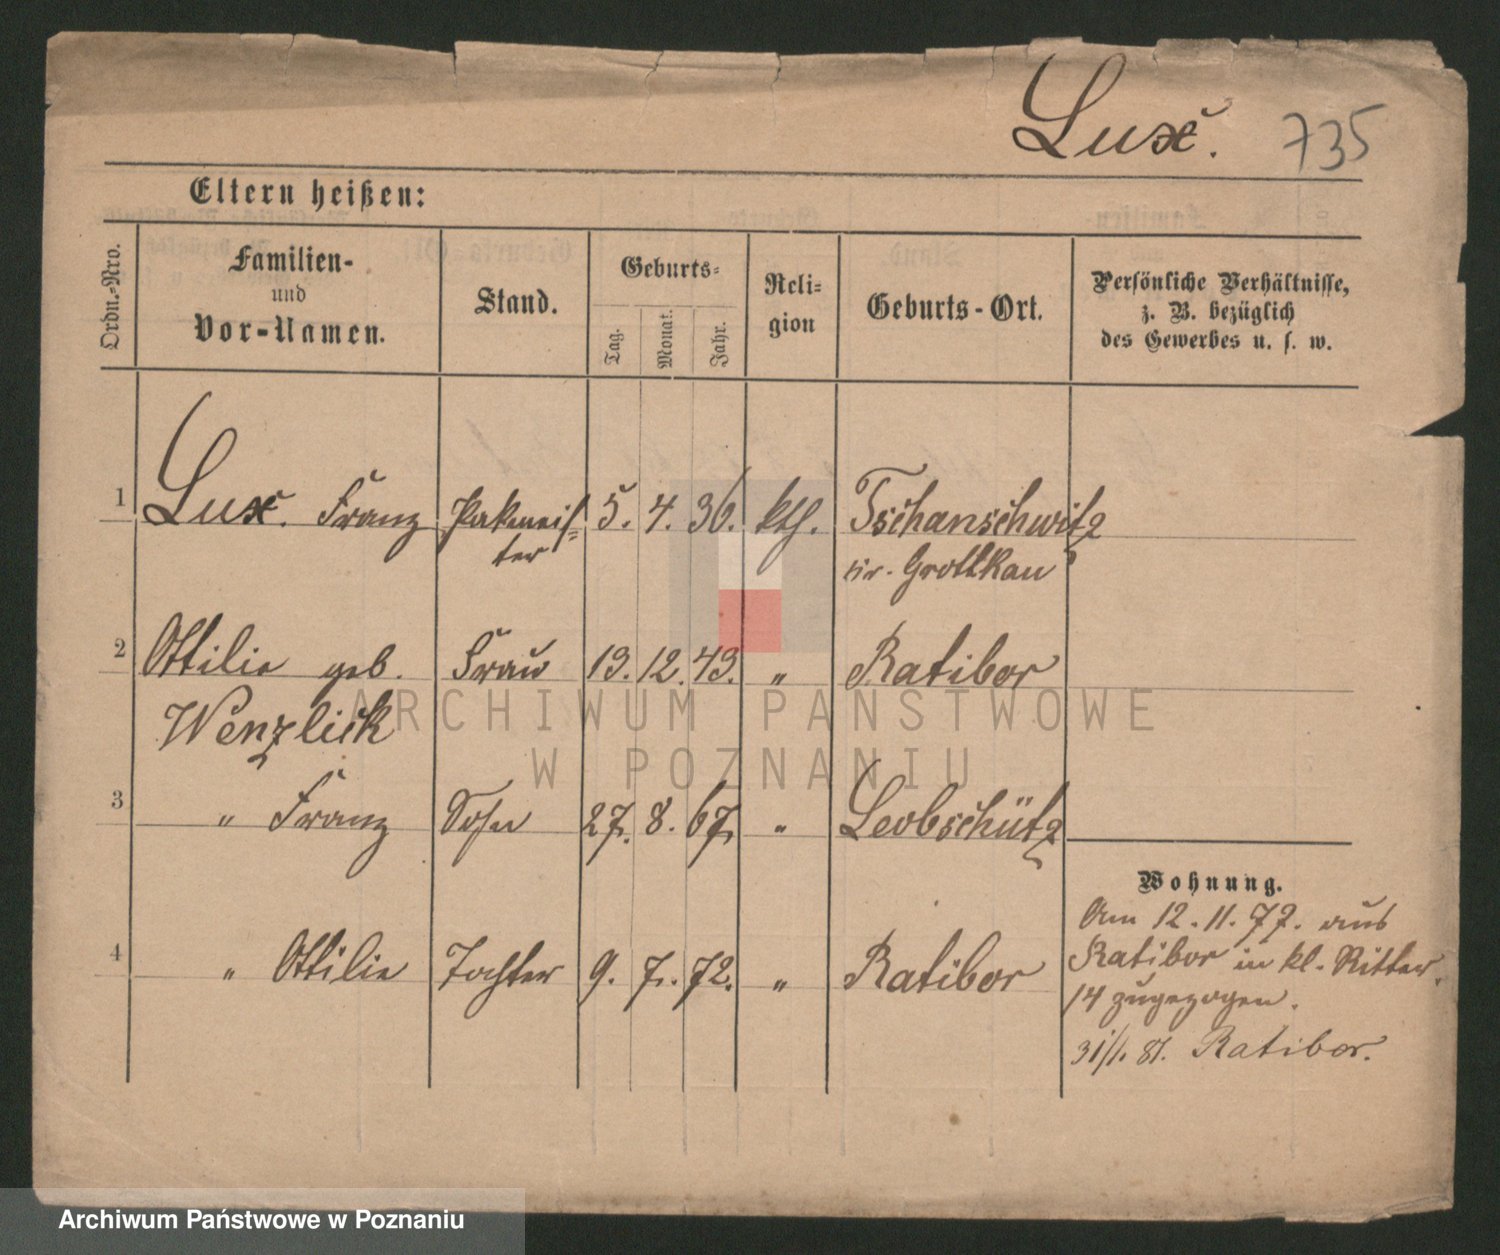 Lux. 735
Eltern heißen:
Ordn.-Nro.
Familien-
und
Vor-Namen.
Stand.
Geburts-
Tag.
Monat.
Jahr.
Reli-
gion
Geburts-Ort.
Persönliche Verhältnisse,
z. B. bezüglich
des Gewerbes u. s. w.
1 Lux. Franz Pakmeis= 5. 4. 36. kth. Tschanschwitz
ter Kr. Grottkau
2 Ottilie geb. Frau 13. 12. 43. " Ratibor
Wenzlick
3 " Franz Sohn 27. 8. 67. " Leobschütz
Wohnung.
Am 12. 11. 77. aus
Ratibor in kl. Ritter
14 zugezogen.
4 " Ottilie Tochter 9. 7. 72. " Ratibor
31/1. 81. Ratibor.
ARCHIWUM PAŃSTWOWE
W POZNANIU
Archiwum Państwowe w Poznaniu